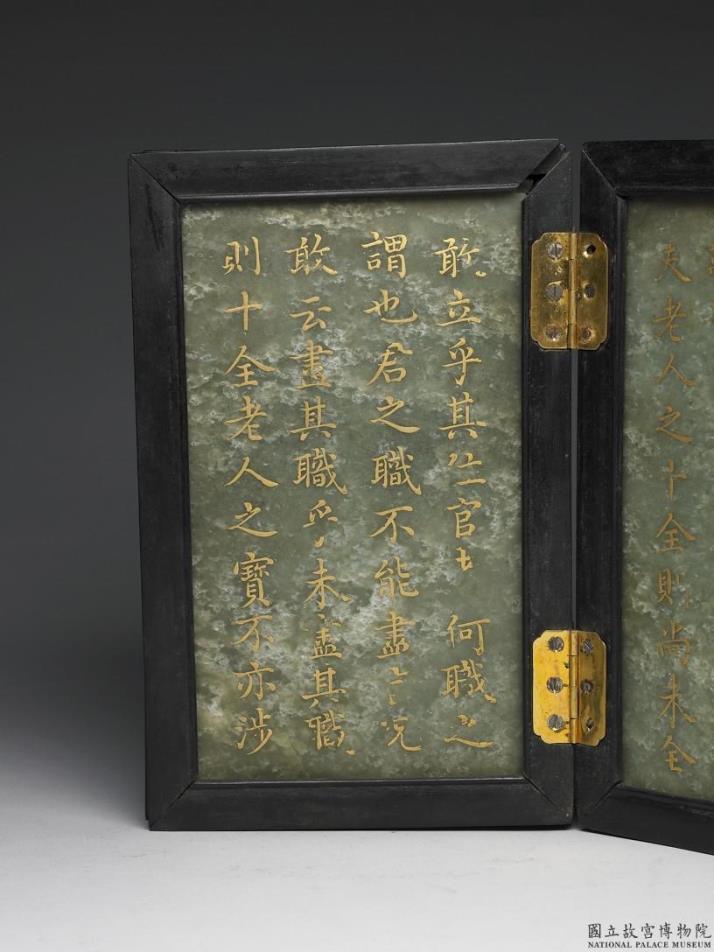 夫老人之十全則尚未全
敢立乎其官何職之
謂也君之職不能盡言況
敢云盡其職乎未盡其職
則十全老人之寶不亦涉
國立故宮博物院
NATIONAL PALACE MUSEUM